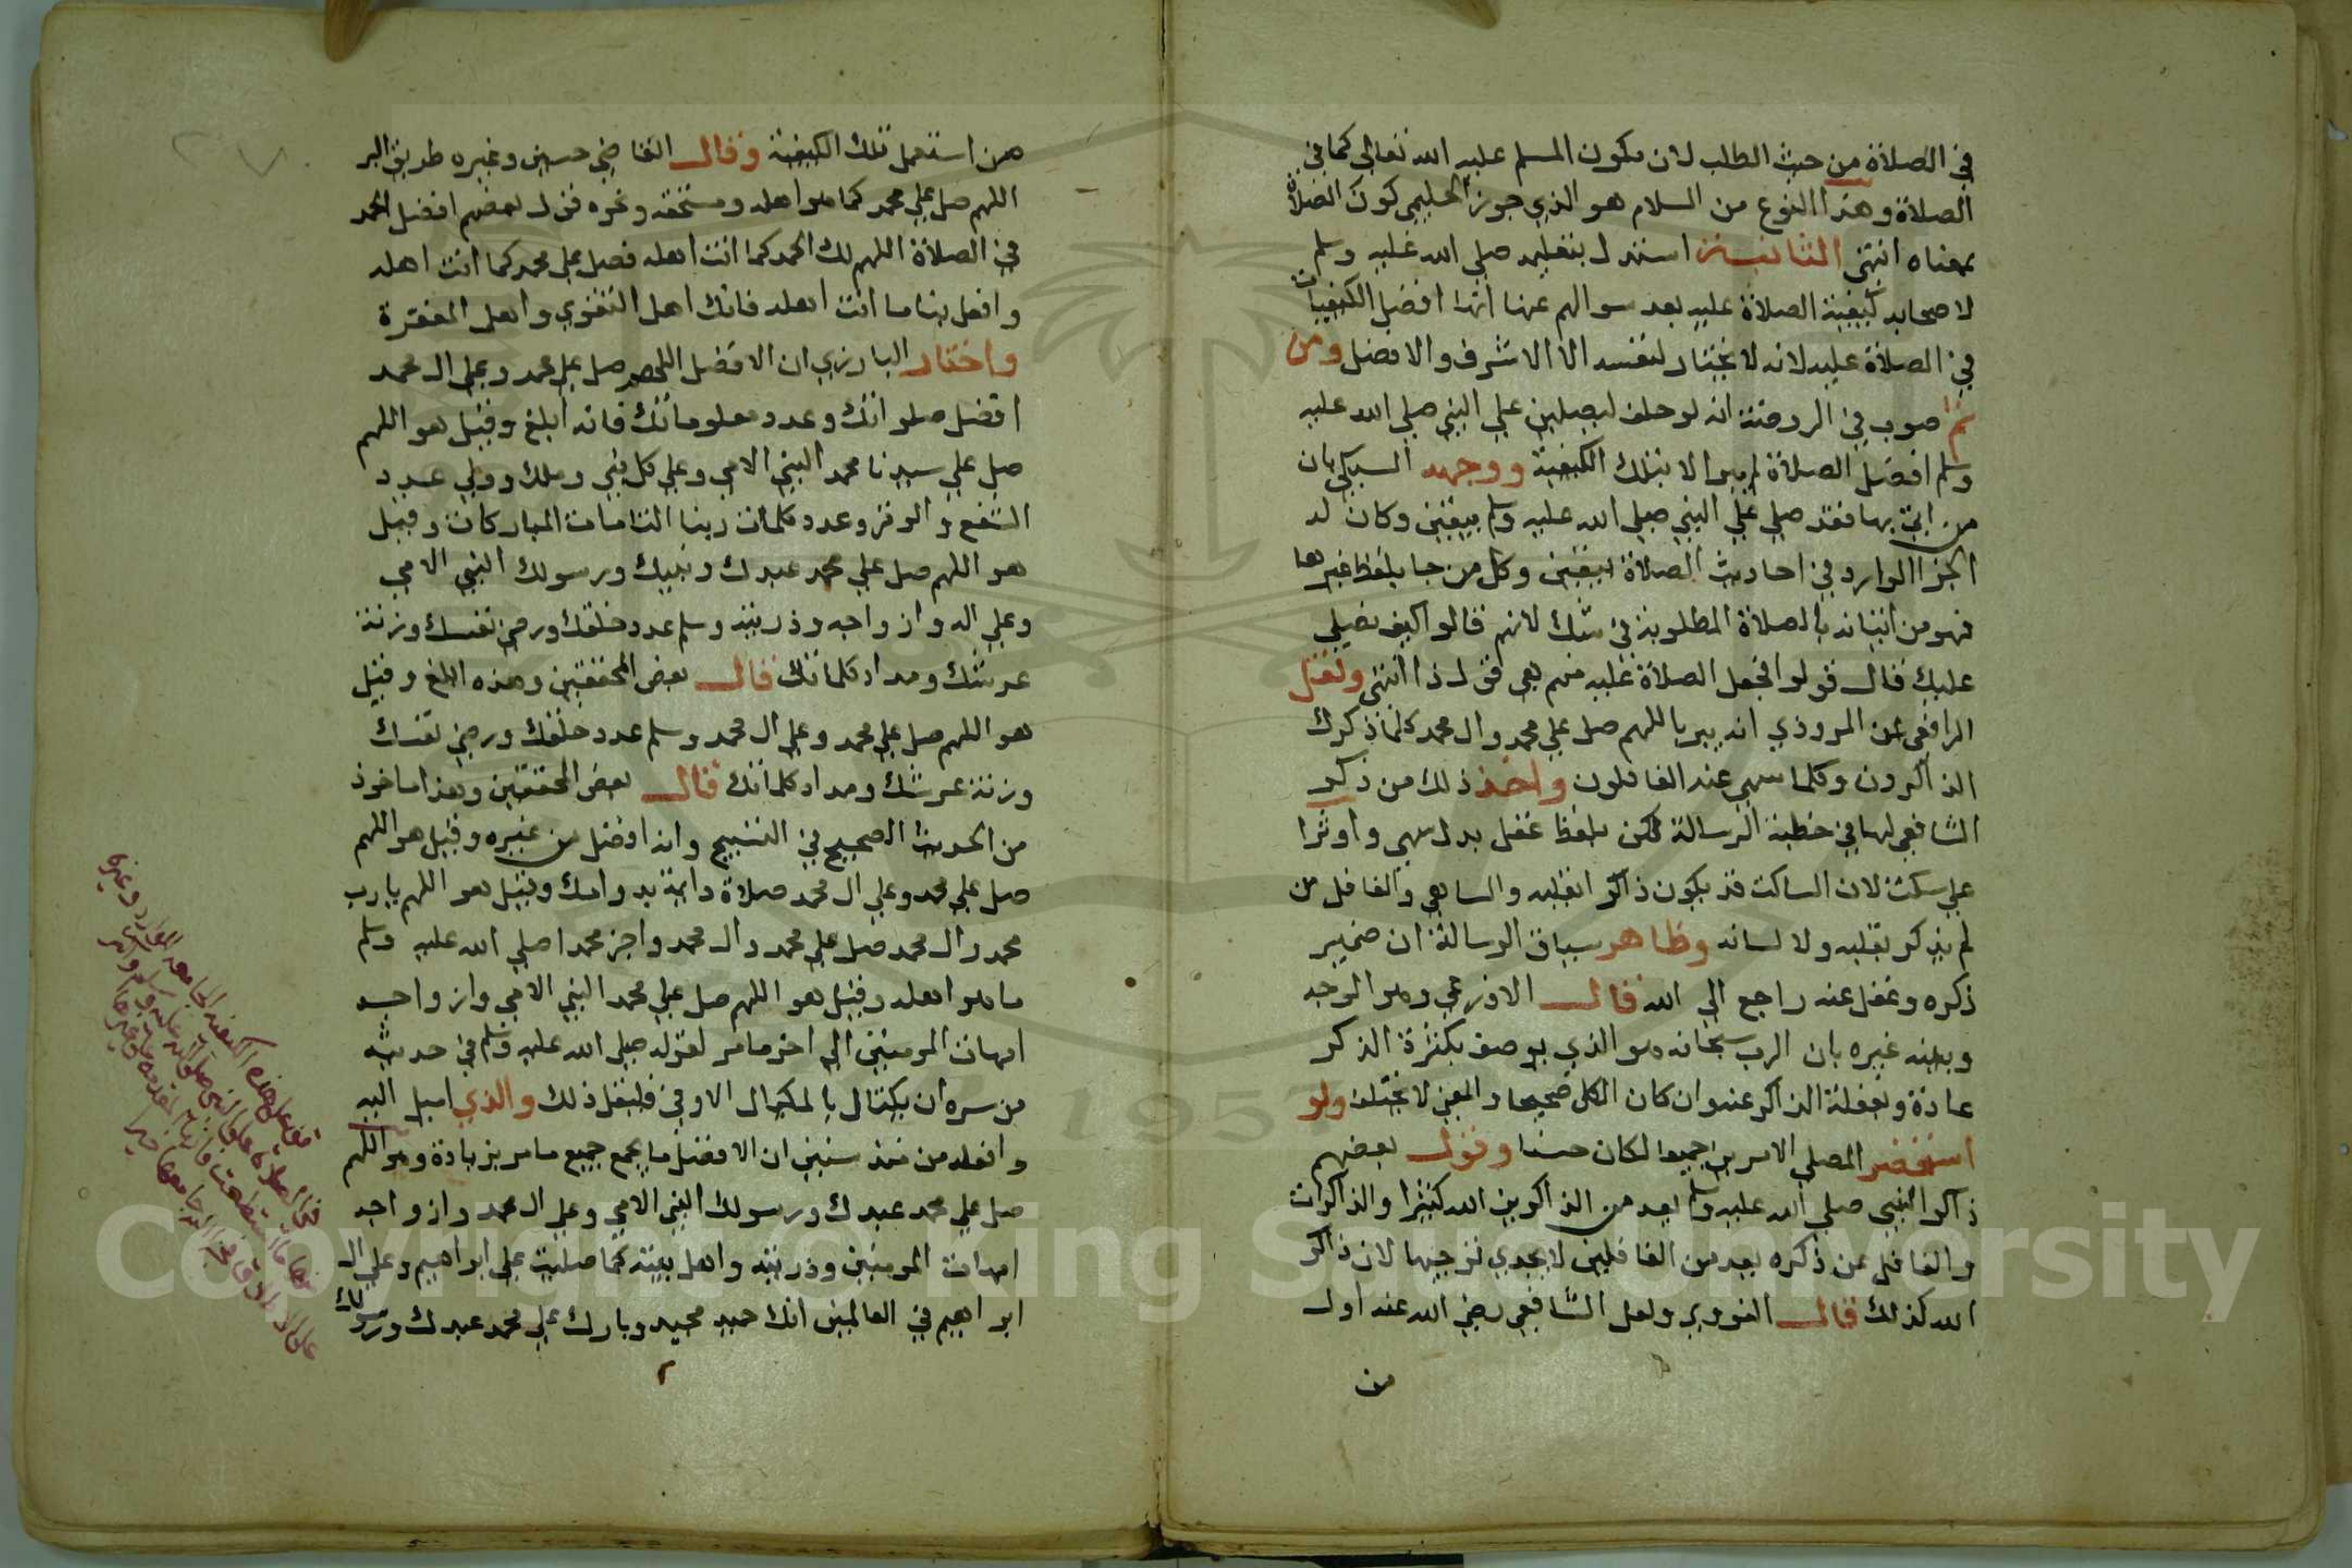 في الصلاة من حيث الطلب لان يكون المسلم عليه الله تعالى كما في
الصلاة وهذا النوع من السلام هو الذي جوز الحليمي كون الصلاة
بمعناه انتهى الثانية استدل بتعليمه صلي الله عليه وسلم
لاصحابه كيفية الصلاة عليه بعد سوالهم عنها انها افضل الكيفيات
في الصلاة عليه لانه لا يختار لنفسه الا الاشرف والافضل ومن
ثم صوب في الروضة انه لو حلف ليصلين علي النبي صلي الله عليه
وسلم افضل الصلاة لم يبر الا بتلك الكيفية ووجهه السبكي بان
من اتي بها فقد صلي علي النبي صلي الله عليه وسلم بيقين وكان له
الجزا الوارد في احاديث الصلاة بيقين وكل من جا بلفظ غيرها
فهو من اتيانه بالصلاة المطلوبة في شك لانهم قالوا كيف نصلي
عليك قال قولوا فجعل الصلاة عليه منهم هي قول ذا انتهى ونقل
الرافعي عن المروذي انه يبر باللهم صل علي محمد وال محمد كلما ذكرك
الذاكرون وكلما سهى عنه الغافلون واخذ ذلك من ذكر
الشافعي لها في خطبة الرسالة لكن بلفظ غفل بدل سهى واوثرا
علي سكت لان الساكت قد يكون ذاكرا بقلبه والساهي والغافل من
لم يذكر بقلبه ولا لسانه وظاهر سياق الرسالة ان ضمير
ذكره وغفل عنه راجع الي الله قال الاذرعي وهو الوجه
وبعينه غيره بان الرب سبحانه هو الذي يوصف بكثرة الذكر
عادة وبغفلة الذاكر عنه وان كان الكل صحيحا والمعني لا يختلف ولو
استحضر المصلي الامرين جميعا لكان حسنا وقول بعضهم
ذاكر النبي صلي الله عليه وسلم يعد من الذاكرين الله كثيرا والذاكرات
والغافل عن ذكره يعد من الغافلين لا يجدي توجيها لان ذاكر
الله كذلك قال النووي ولعل الشافعي رضي الله عنه اول
من
هن استعمل تلك الكيفية وقال القاضي حسين وغيره طريق البر
اللهم صل علي محمد كما هو اهله ومستحقه ونحوه قول بعضهم افضل الحمد
في الصلاة اللهم لك الحمد كما انت اهله فصل علي محمد كما انت اهله
وافعل بنا ما انت اهله فانك اهل التقوي واهل المغفرة
واختار البارزي ان الافضل اللهم صل علي محمد وعلي ال محمد
افضل صلواتك وعدد معلوماتك فانه ابلغ وقيل هو اللهم
صل علي سيدنا محمد النبي الامي وعلي كل نبي وملك وولي عدد
الشفع والوتر وعدد كلمات ربنا التامات المباركات وقيل
هو اللهم صل علي محمد عبدك ونبيك ورسولك النبي الامي
وعلي اله وازواجه وذريته وسلم عدد خلقك ورضى نفسك وزنة
عرشك ومداد كلماتك قال بعض المحققين وهذه ابلغ وقيل
هو اللهم صل علي محمد وعلي ال محمد وسلم عدد خلقك ورضي نفسك
وزنة عرشك ومداد كلماتك قال بعض المحققين وهذا ماخوذ
من الحديث الصحيح في التسبيح وانه افضل من غيره وقيل هو اللهم
صل علي محمد وعلي ال محمد صلاة دايمة بدوامك وقيل هو اللهم يا رب
محمد وال محمد صل علي محمد وال محمد واجز محمدا صلي الله عليه وسلم
ما هو اهله وقيل هو اللهم صل علي محمد النبي الامي وازواجه
امهات المومنين الي اخر ما مر لقوله صلي الله عليه وسلم في حديثه
من سره ان يكتال بالمكيال الاوفي فليقل ذلك والذي اميل اليه
وافعله من منذ سنين ان الافضل ما يجمع جميع ما مر بزيادة وهو اللهم
صل علي محمد عبدك ورسولك النبي الامي وعلي ال محمد وازواجه
امهات المومنين وذريته واهل بيته كما صليت علي ابراهيم وعلي ال
ابراهيم في العالمين انك حميد مجيد وبارك علي محمد عبدك ورسولك
Copyright © King Saud University
1957